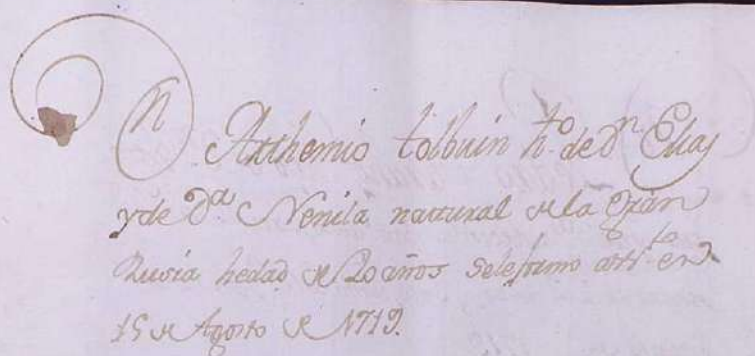 Dn Arthemio tolbuin ho de dn Elias
y de Da Nenila natural de la Gran
Rusia hedad de 20 años se le formo asto en
15 de Agosto de 1719.